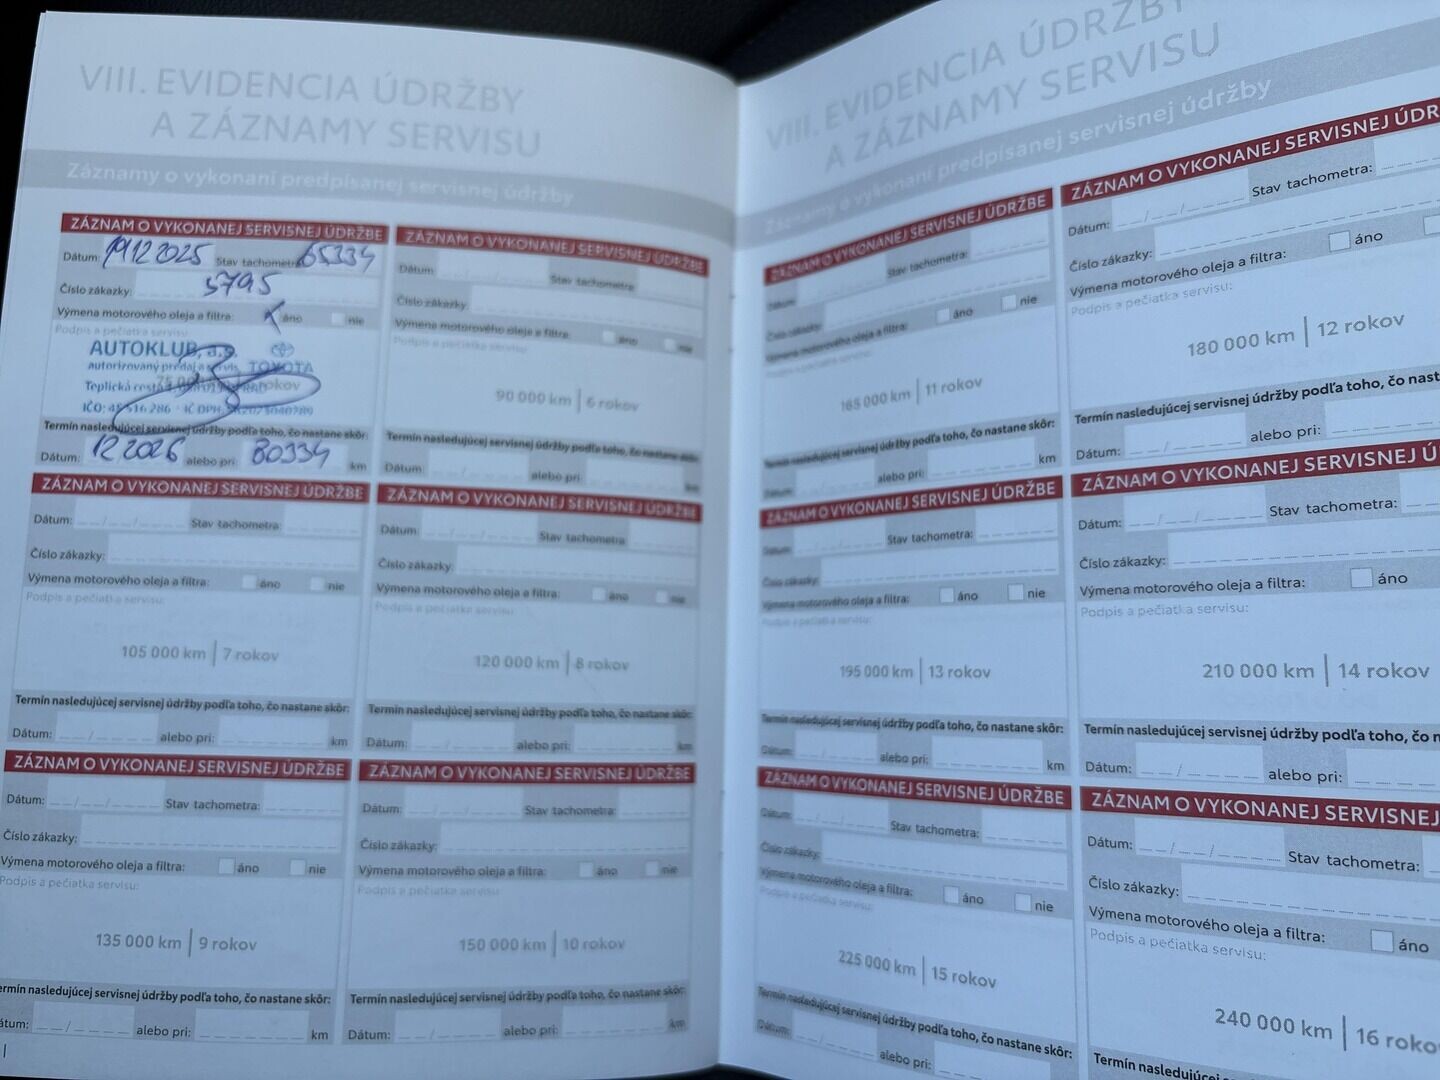 VIII. EVIDENCIA ÚDRŽBY
A ZÁZNAMY SERVISU
Záznamy o vykonaní predpísanej servisnej údržby
ZÁZNAM O VYKONANEJ SERVISNEJ ÚDRŽBE
Dátum: 19.12.2025 Stav tachometra: 65334
Číslo zákazky: 5795
Výmena motorového oleja a filtra: áno nie
Podpis a pečiatka servisu:
AUTOKLUB, a.s.
autorizovaný predaj a servis TOYOTA
Teplická cesta
75 000 rokov
IČO: 45516286 · IČ DPH:
Termín nasledujúcej servisnej údržby podľa toho, čo nastane skôr:
Dátum: 12 2026 alebo pri: 80334 km
ZÁZNAM O VYKONANEJ SERVISNEJ ÚDRŽBE
Dátum: Stav tachometra
Číslo zákazky:
Výmena motorového oleja a filtra: áno nie
Podpis a pečiatka servisu:
90 000 km | 6 rokov
Termín nasledujúcej servisnej údržby podľa toho, čo nastane skôr:
Dátum: alebo pri: km
ZÁZNAM O VYKONANEJ SERVISNEJ ÚDRŽBE
Dátum: Stav tachometra:
Číslo zákazky:
Výmena motorového oleja a filtra: áno nie
Podpis a pečiatka servisu:
105 000 km | 7 rokov
Termín nasledujúcej servisnej údržby podľa toho, čo nastane skôr:
Dátum: alebo pri: km
ZÁZNAM O VYKONANEJ SERVISNEJ ÚDRŽBE
Dátum: Stav tachometra
Číslo zákazky:
Výmena motorového oleja a filtra: áno nie
Podpis a pečiatka servisu:
120 000 km | 8 rokov
Termín nasledujúcej servisnej údržby podľa toho, čo nastane skôr:
Dátum: alebo pri: km
ZÁZNAM O VYKONANEJ SERVISNEJ ÚDRŽBE
Dátum: Stav tachometra:
Číslo zákazky:
Výmena motorového oleja a filtra: áno nie
Podpis a pečiatka servisu:
135 000 km | 9 rokov
ermín nasledujúcej servisnej údržby podľa toho, čo nastane skôr:
átum: alebo pri: km
ZÁZNAM O VYKONANEJ SERVISNEJ ÚDRŽBE
Dátum: Stav tachometra:
Číslo zákazky:
Výmena motorového oleja a filtra: áno nie
Podpis a pečiatka servisu:
150 000 km | 10 rokov
Termín nasledujúcej servisnej údržby podľa toho, čo nastane skôr:
Dátum: alebo pri: km
VIII. EVIDENCIA ÚDRŽBY
A ZÁZNAMY SERVISU
Záznamy o vykonaní predpísanej servisnej údržby
ZÁZNAM O VYKONANEJ SERVISNEJ ÚDRŽBE
Dátum: Stav tachometra:
Číslo zákazky:
Výmena motorového oleja a filtra: áno nie
Podpis a pečiatka servisu:
165 000 km | 11 rokov
Termín nasledujúcej servisnej údržby podľa toho, čo nastane skôr:
Dátum: alebo pri: km
ZÁZNAM O VYKONANEJ SERVISNEJ ÚDR
Dátum: Stav tachometra:
Číslo zákazky:
Výmena motorového oleja a filtra: áno
Podpis a pečiatka servisu:
180 000 km | 12 rokov
Termín nasledujúcej servisnej údržby podľa toho, čo nast
Dátum: alebo pri:
ZÁZNAM O VYKONANEJ SERVISNEJ ÚDRŽBE
Dátum: Stav tachometra:
Číslo zákazky:
Výmena motorového oleja a filtra: áno nie
Podpis a pečiatka servisu:
195 000 km | 13 rokov
Termín nasledujúcej servisnej údržby podľa toho, čo nastane skôr:
Dátum: alebo pri: km
ZÁZNAM O VYKONANEJ SERVISNEJ Ú
Dátum: Stav tachometra:
Číslo zákazky:
Výmena motorového oleja a filtra: áno
Podpis a pečiatka servisu:
210 000 km | 14 rokov
Termín nasledujúcej servisnej údržby podľa toho, čo n
Dátum: alebo pri:
ZÁZNAM O VYKONANEJ SERVISNEJ ÚDRŽBE
Dátum: Stav tachometra:
Číslo zákazky:
Výmena motorového oleja a filtra: áno nie
Podpis a pečiatka servisu:
225 000 km | 15 rokov
Termín nasledujúcej servisnej údržby podľa toho, čo nastane skôr:
Dátum: alebo pri: km
ZÁZNAM O VYKONANEJ SERVISNEJ
Dátum: Stav tachometra:
Číslo zákazky:
Výmena motorového oleja a filtra: áno
Podpis a pečiatka servisu:
240 000 km | 16 roko
Termín nasledujúcej servisnej údržby podľa